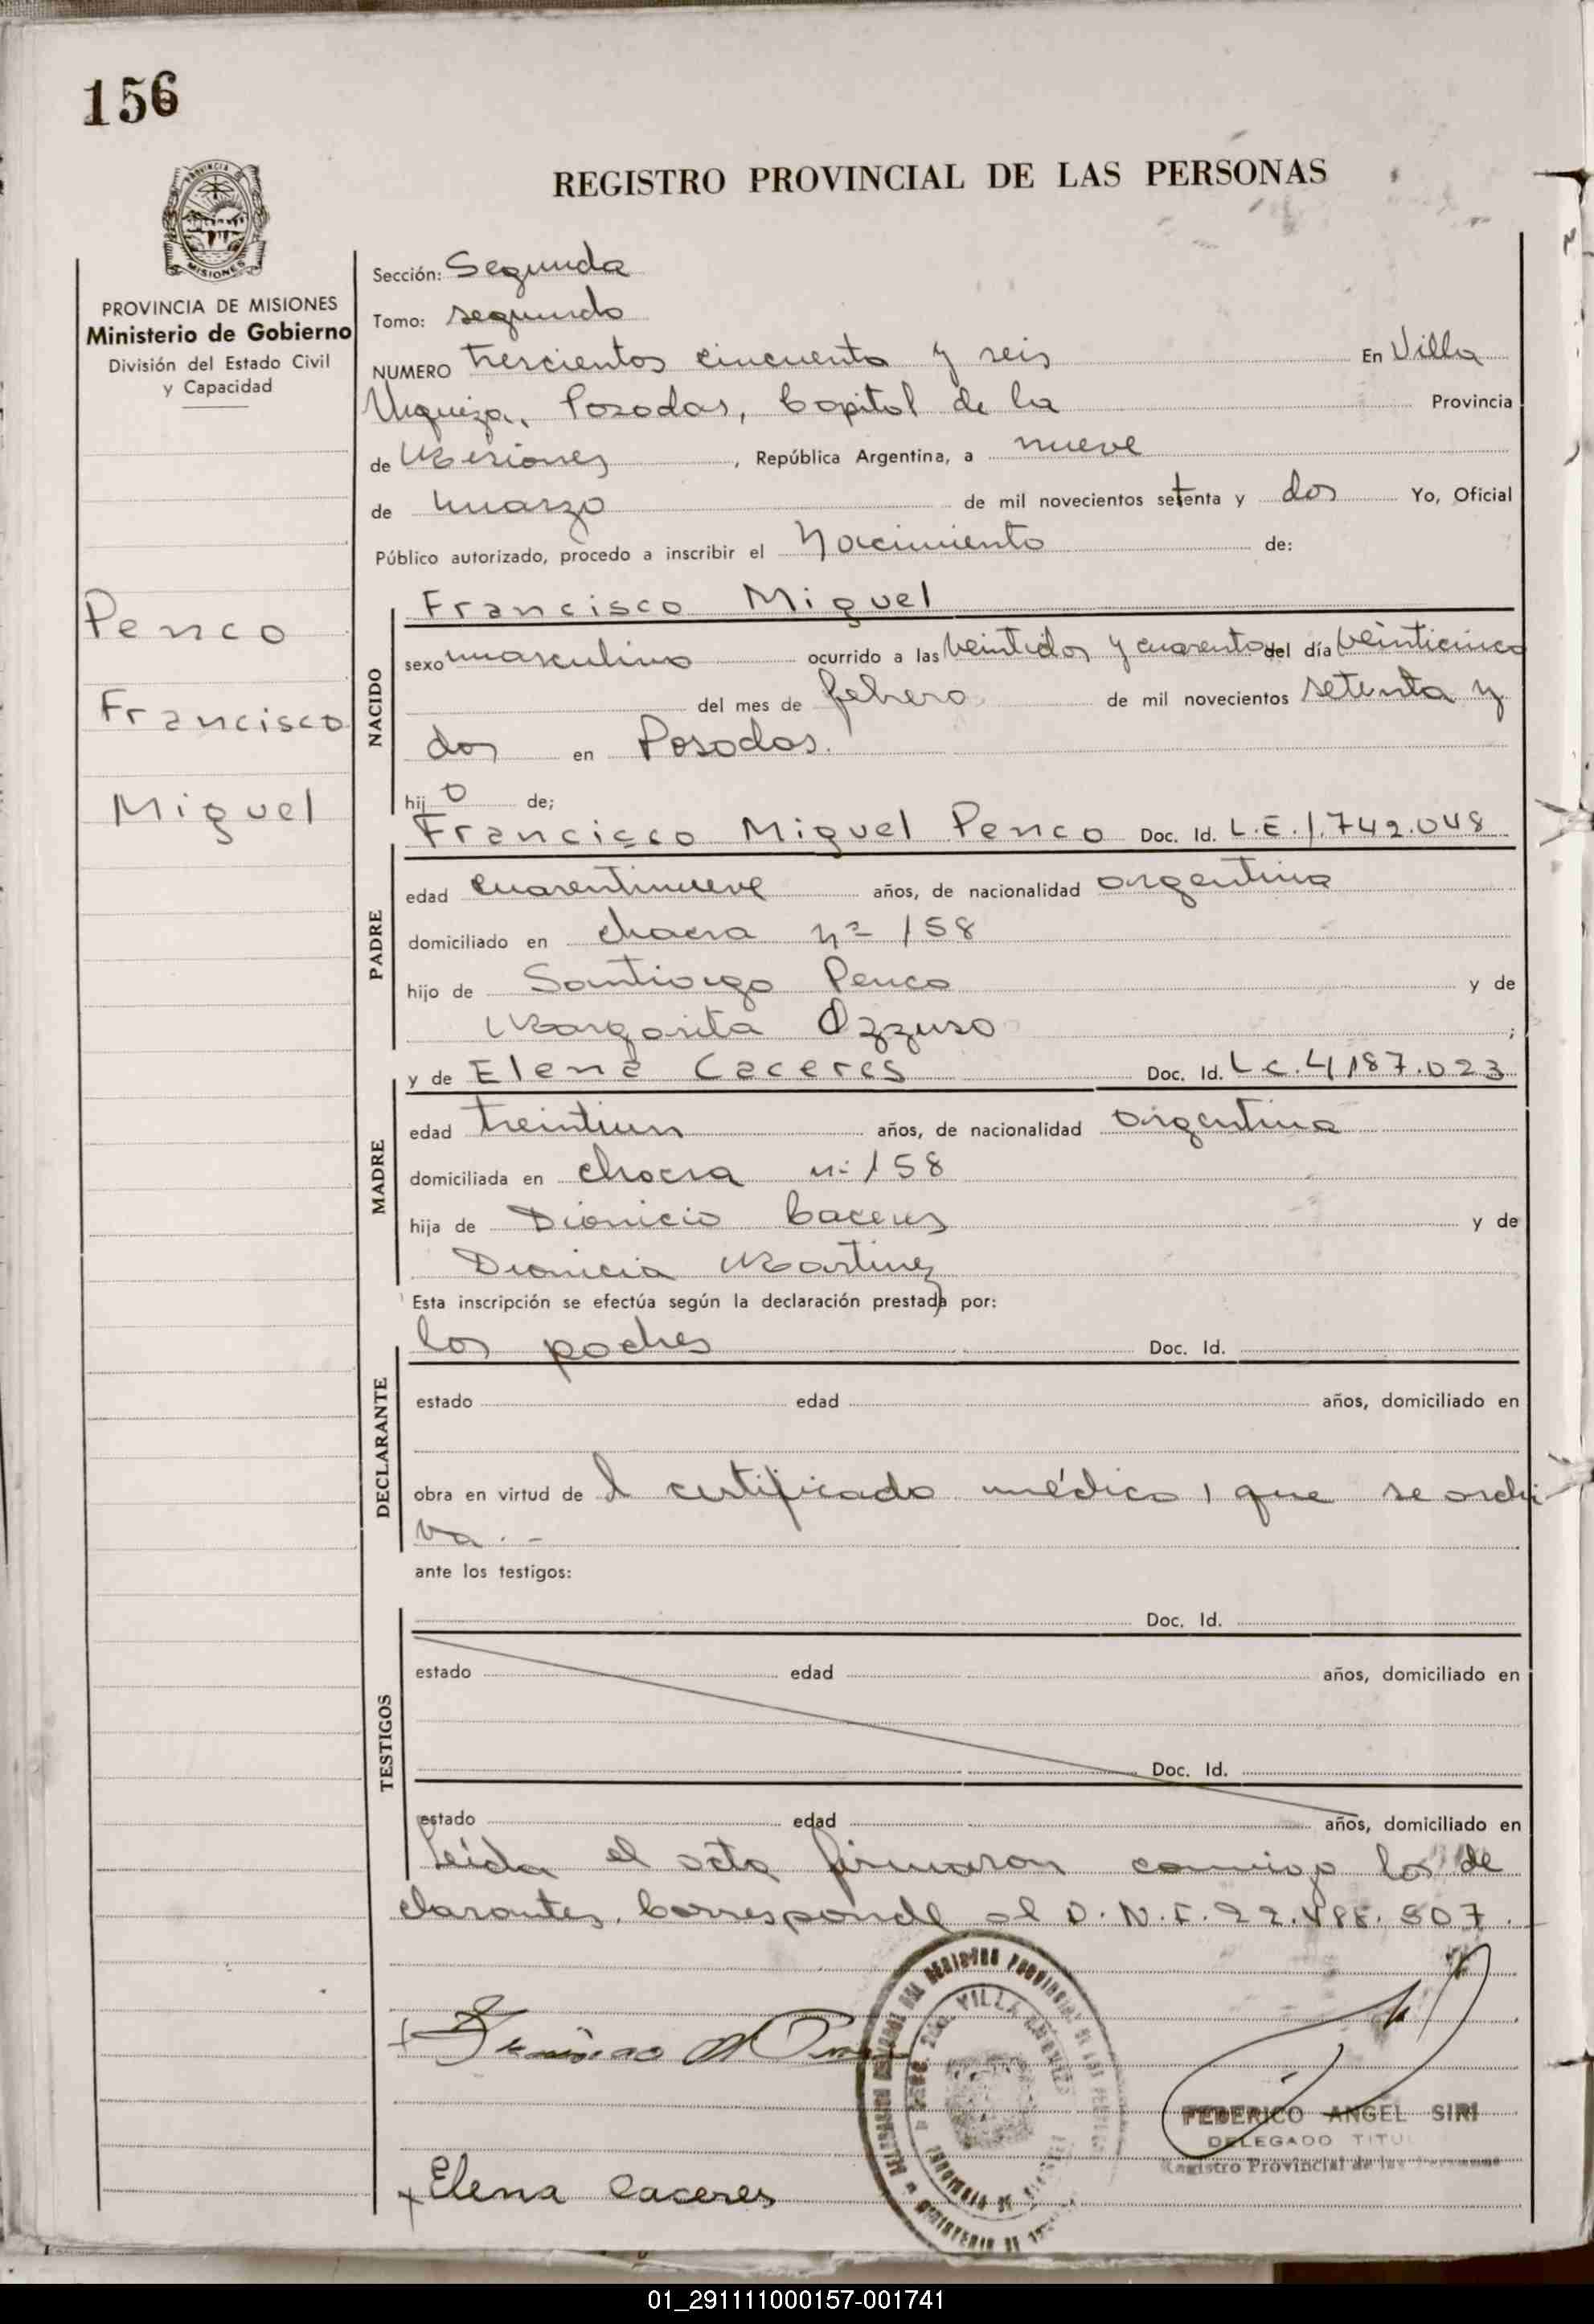 156
PROVINCIA DE MISIONES
Ministerio de Gobierno
División del Estado Civil
y Capacidad
Penco
Francisco
Miguel
REGISTRO PROVINCIAL DE LAS PERSONAS
Sección: Segunda
Tomo: segundo
NUMERO trescientos cincuenta y seis En Villa
Urquiza, Posadas, Capital de la Provincia
de Misiones, República Argentina, a nueve
de marzo de mil novecientos setenta y dos Yo, Oficial
Público autorizado, procedo a inscribir el Nacimiento de:
Francisco Miguel
NACIDO
sexo masculino ocurrido a las veintidos y cuarenta del día veinticinco
del mes de febrero de mil novecientos setenta y
dos en Posadas.
hijo de;
Francisco Miguel Penco Doc. Id. L.E. 1.742.048
PADRE
edad cuarentinueve años, de nacionalidad argentina
domiciliado en chacra nº 158
hijo de Santiago Penco y de
Margarita Ozzuso ;
y de Elena Caceres Doc. Id. L.C. 4187.023
MADRE
edad treintiun años, de nacionalidad argentina
domiciliada en chacra nº 158
hija de Dionicio Caceres y de
Dionicia Martinez
Esta inscripción se efectúa según la declaración prestada por:
los padres Doc. Id.
DECLARANTE
estado edad años, domiciliado en
obra en virtud de l certificado médico, que se archi
va. -
ante los testigos:
Doc. Id.
TESTIGOS
estado edad años, domiciliado en
Doc. Id.
estado edad años, domiciliado en
Leída el acta firmaron conmigo los de
clarantes. Corresponde al D.N.I. 22.488.507.
Francisco M Penco
VILLA URQUIZA
FEDERICO ANGEL SIRI
DELEGADO TITU
Registro Provincial de las Personas
Elena Caceres
01_291111000157-001741